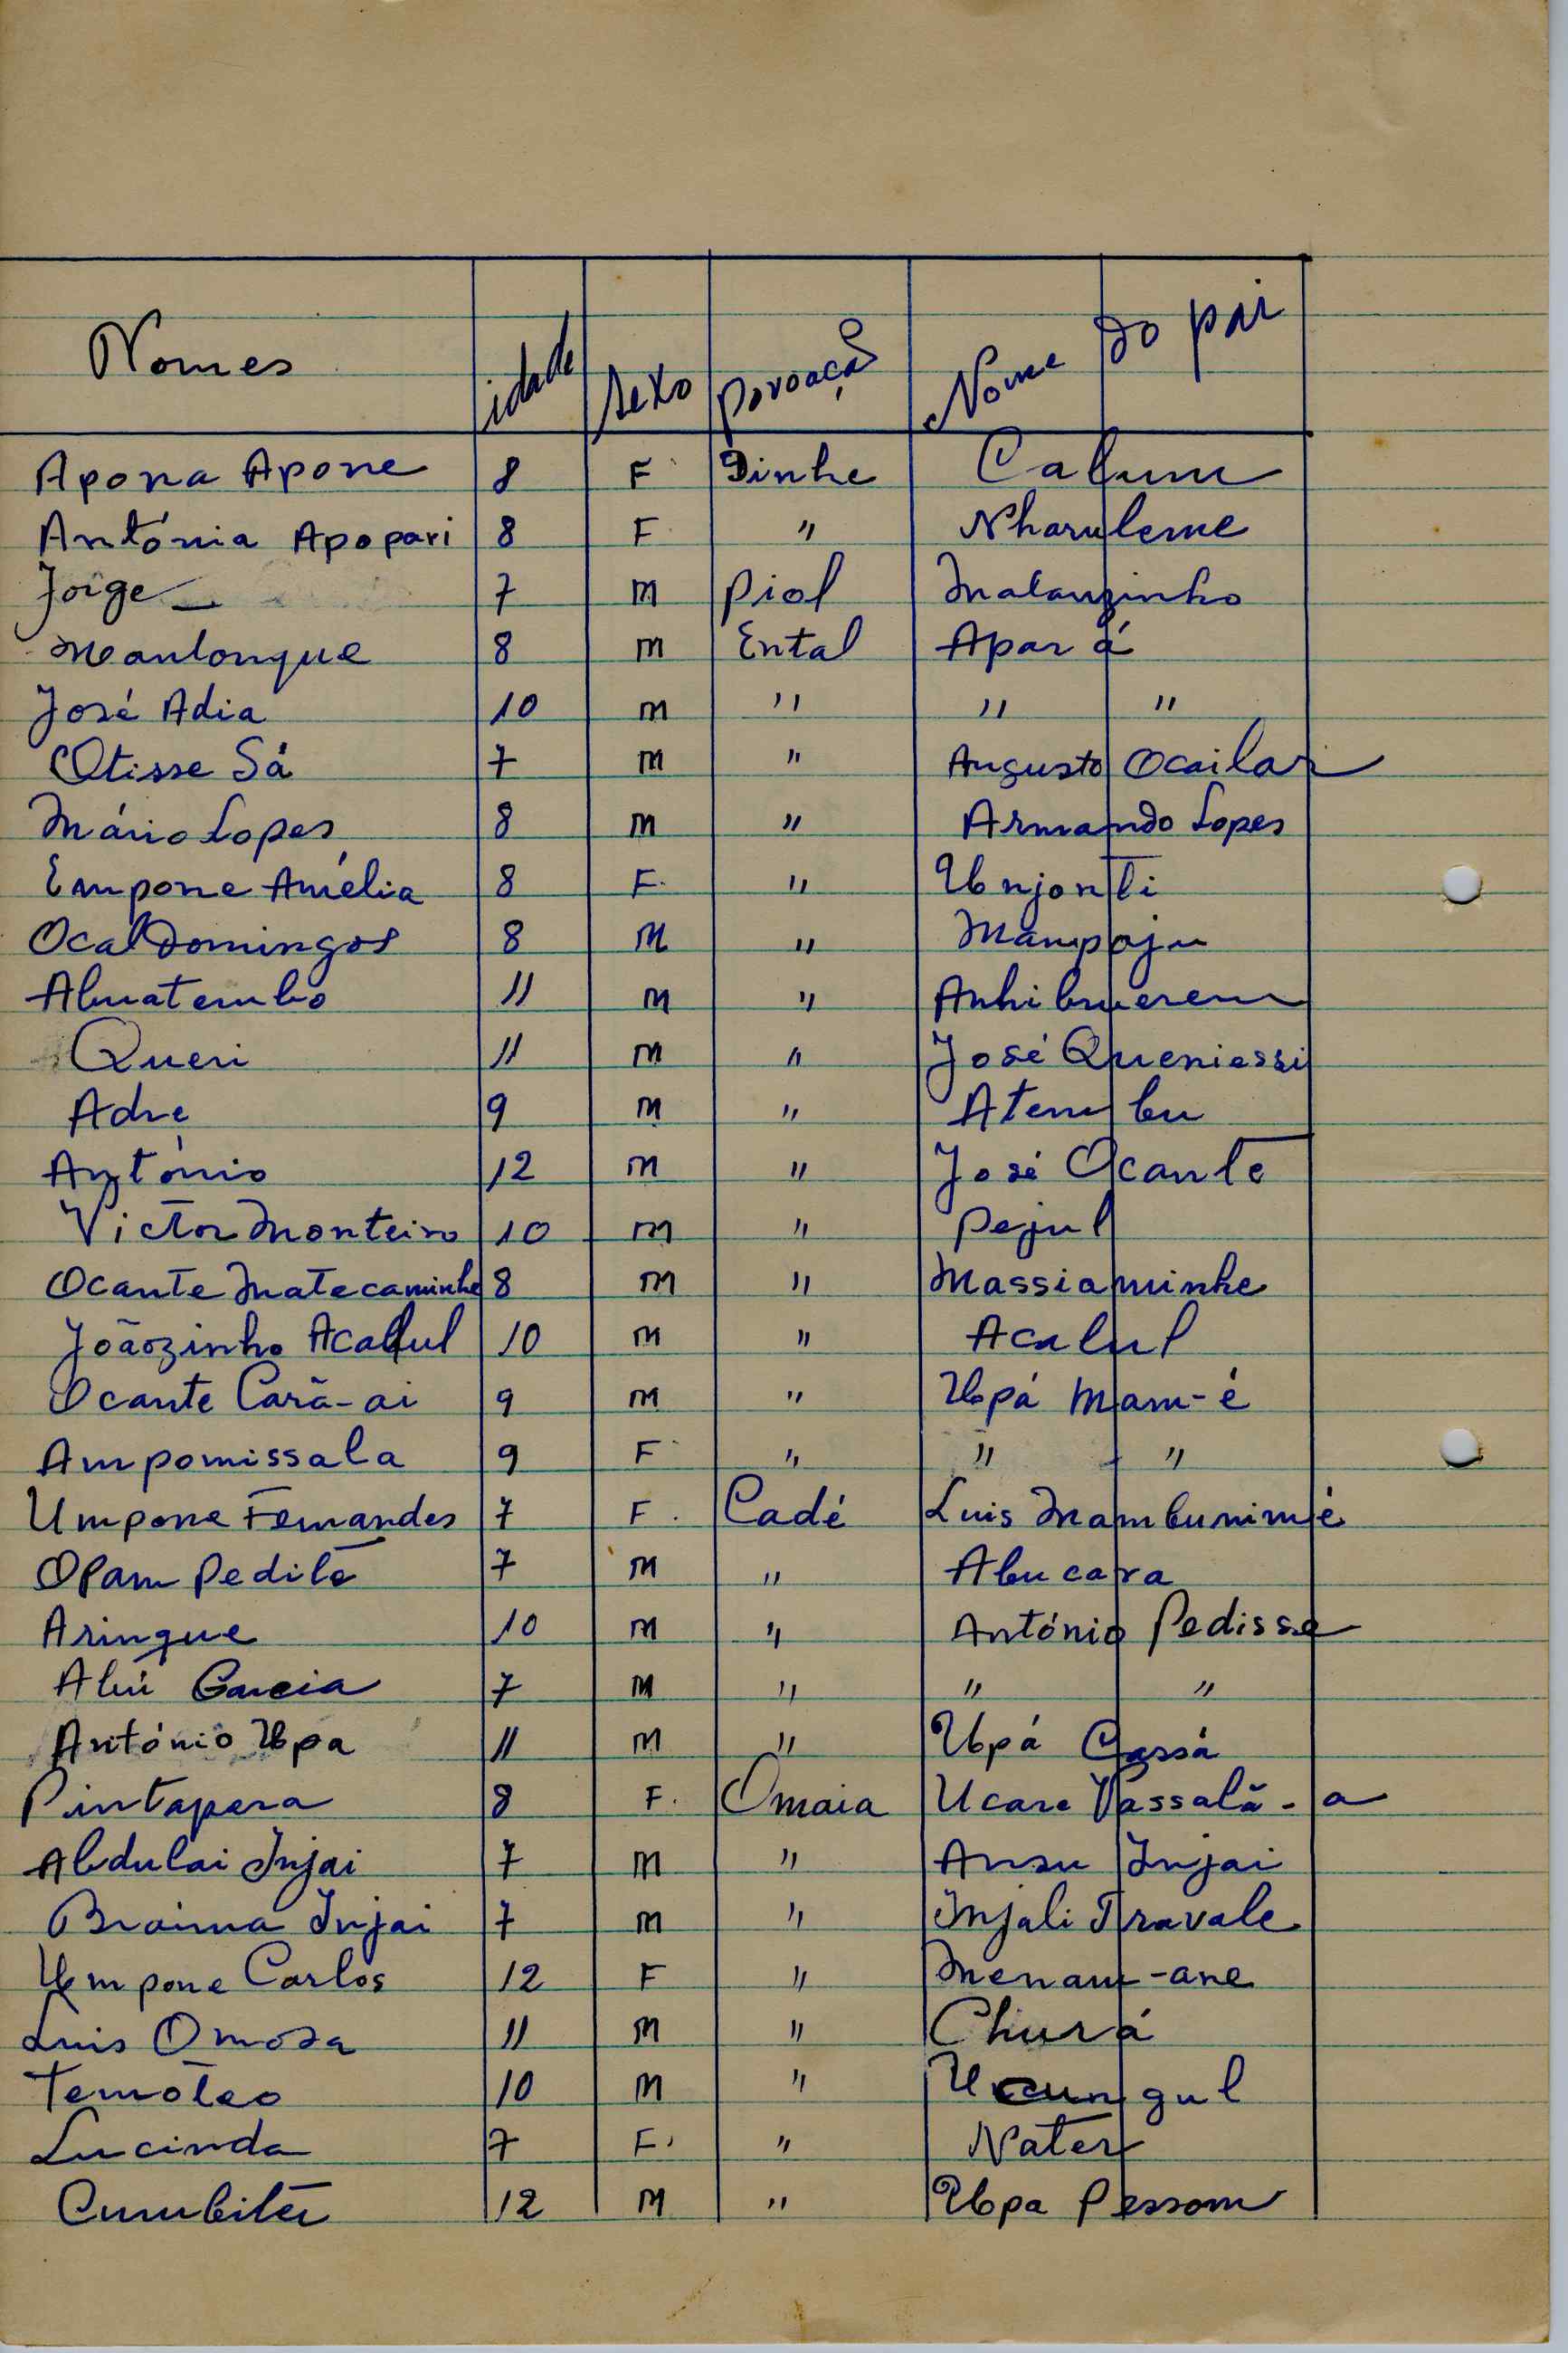 Nomes idade sexo povoação Nome do pai
Apona Apone 8 F Dinhe Cabum
Antónia Apopari 8 F " Nharubeme
Jorge 7 M Piol Malanzinho
Manlongue 8 M Ental Apará
José Adia 10 M " " "
Otisse Sá 7 M " Augusto Ocailar
Mário Lopes 8 M " Armando Lopes
Empone Amélia 8 F. " Unjonti
Ocal Domingos 8 M " Mampoju
Abuatembo 11 M "
Queri 11 M " José Queniessi
Adre 9 M " Atembu
António 12 M " José Ocante
Victor Monteiro 10 M " Pejul
Ocante Matecaminhe 8 M " Massiaminhe
Joãozinho Acabul 10 M " Acabul
Ocante Carã-ai 9 M " Upá Mam-é
Ampomissala 9 F " " "
Umpone Fernandes 7 F. Cadé Luis Mambunimé
Opam Peditê 7 M " Abucara
Aringue 10 M " António Pedisse
Abú Garcia 7 M " " "
António Upa 11 M " Upá Cassá
Pintapera 8 F. Omaia Ucare Vassalã-a
Abdulai Injai 7 M " Ansu Injai
Braima Injai 7 M " Injali Travale
Umpone Carlos 12 F " Menam-ane
Luis Omosa 11 M " Churá
Temóteo 10 M " Ucungul
Lucinda 7 F. " Nater
Cumbiter 12 M " Upa Pessom